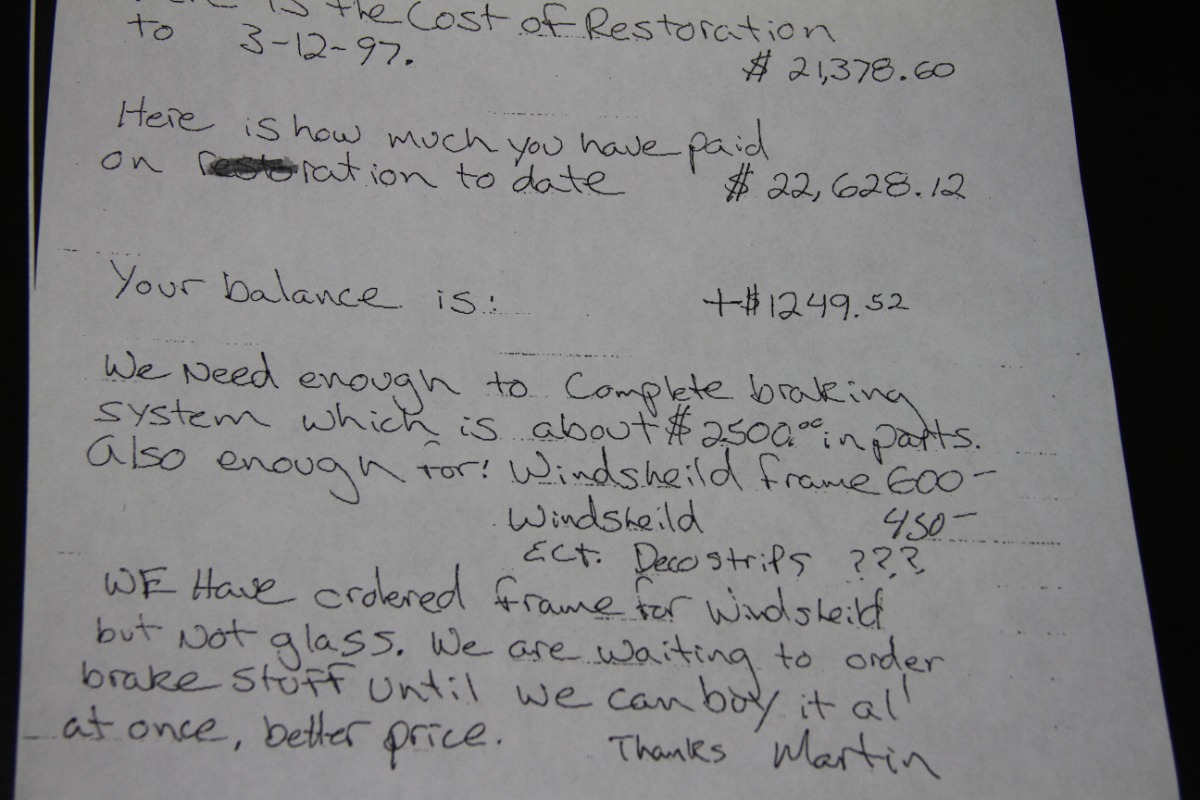 is the Cost of Restoration
to 3-12-97.
$ 21,378.60
Here is how much you have paid
on restoration to date $ 22,628.12
Your balance is: +$1249.52
We Need enough to Complete braking
system which is about $2500.00 in parts.
Also enough for: Windsheild frame 600-
Windsheild 450-
Ect. Deco strips ???
WE Have ordered frame for Windsheild
but Not glass. We are waiting to order
brake stuff until we can buy it all
at once, better price. Thanks Martin